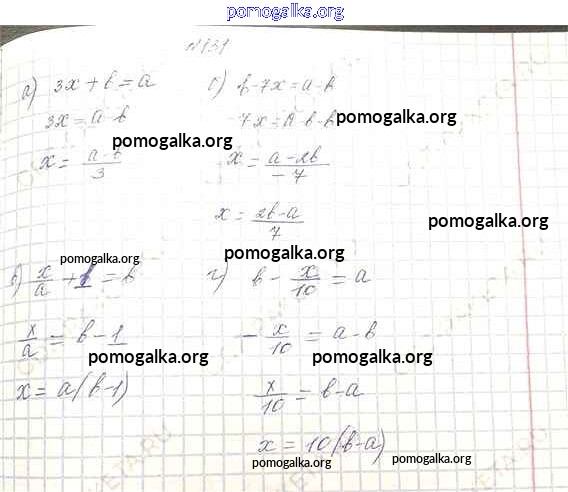 pomogalka.org
N131
а) 3x + b = a
3x = a - b
x = a - b / 3
б) b - 7x = a - b
-7x = a - b - b
x = a - 2b / -7
x = 2b - a / 7
pomogalka.org
pomogalka.org
pomogalka.org
pomogalka.org
pomogalka.org
в) x/a + 1 = b
x/a = b - 1
x = a(b - 1)
г) b - x/10 = a
- x/10 = a - b
x/10 = b - a
x = 10(b - a)
pomogalka.org
pomogalka.org
pomogalka.org
pomogalka.org